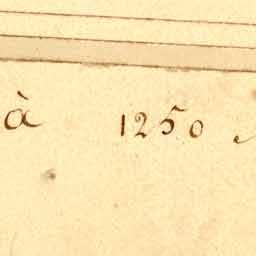 à 1250